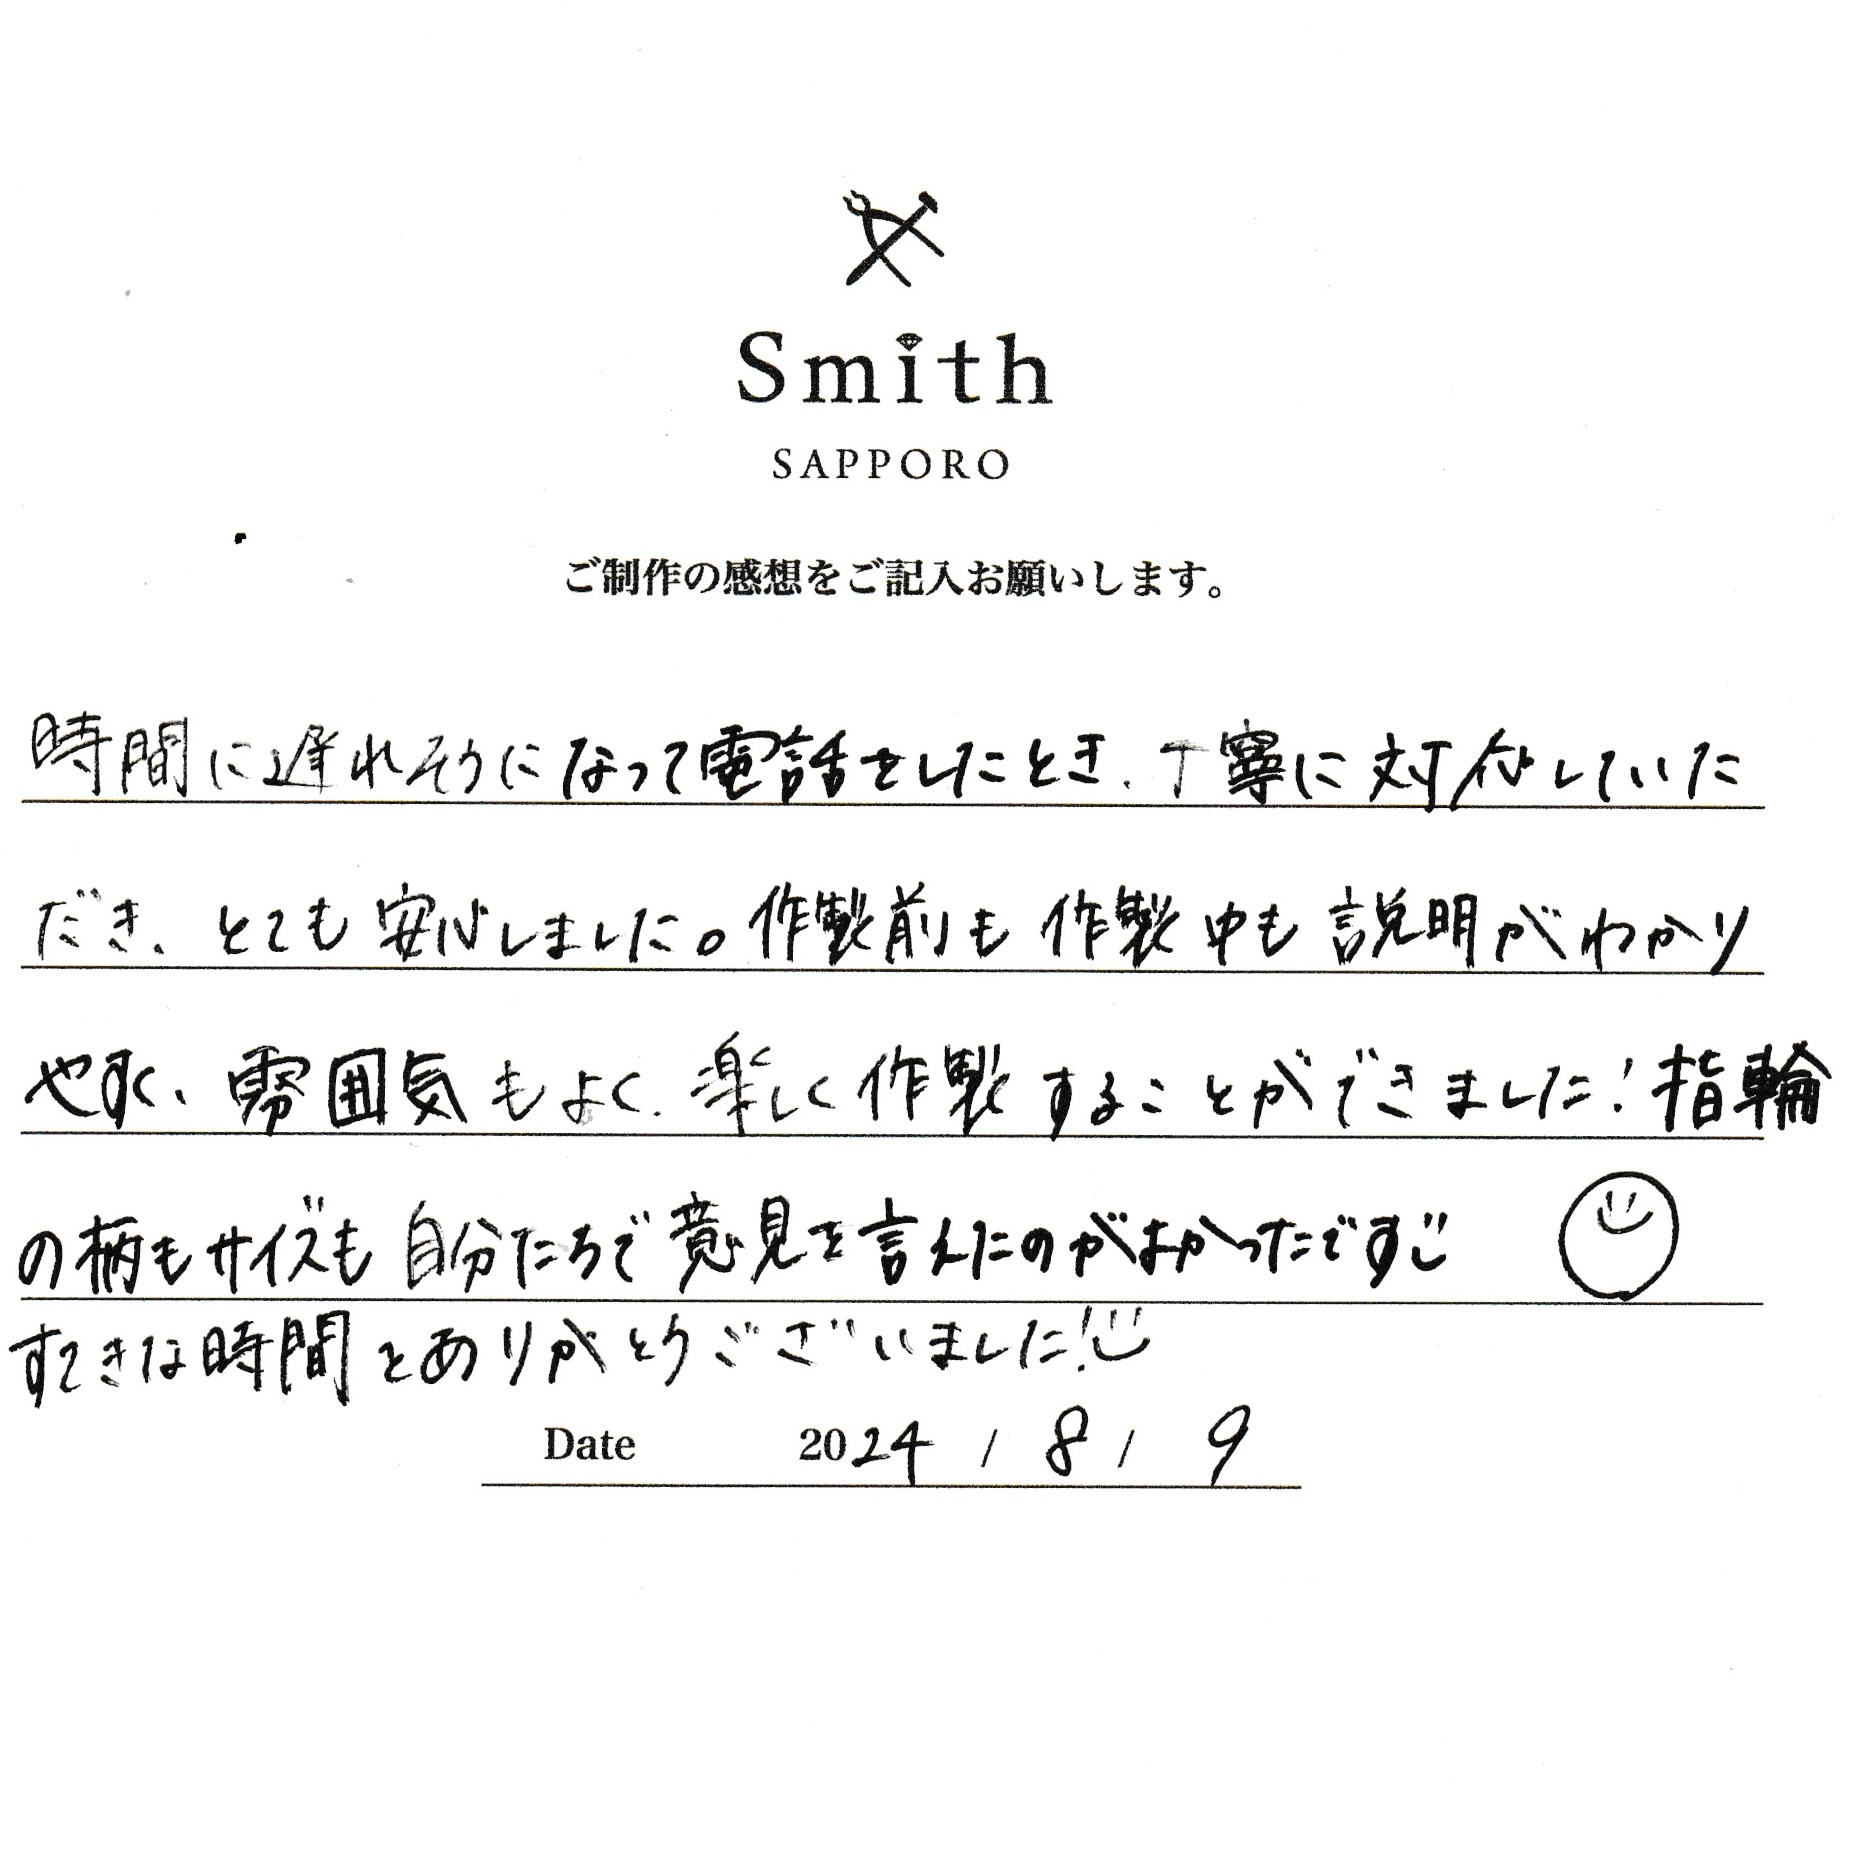 Smith
SAPPORO
ご制作の感想をご記入お願いします。
時間に遅れそうになって電話をしたとき、丁寧に対応していた
だき、とても安心しました。作製前も作製中も説明がわかり
やすく、雰囲気もよく、楽しく作製することができました!指輪
の柄もサイズも自分たちで意見を言えたのがよかったです
すてきな時間をありがとうございました!
Date 2024 / 8 / 9